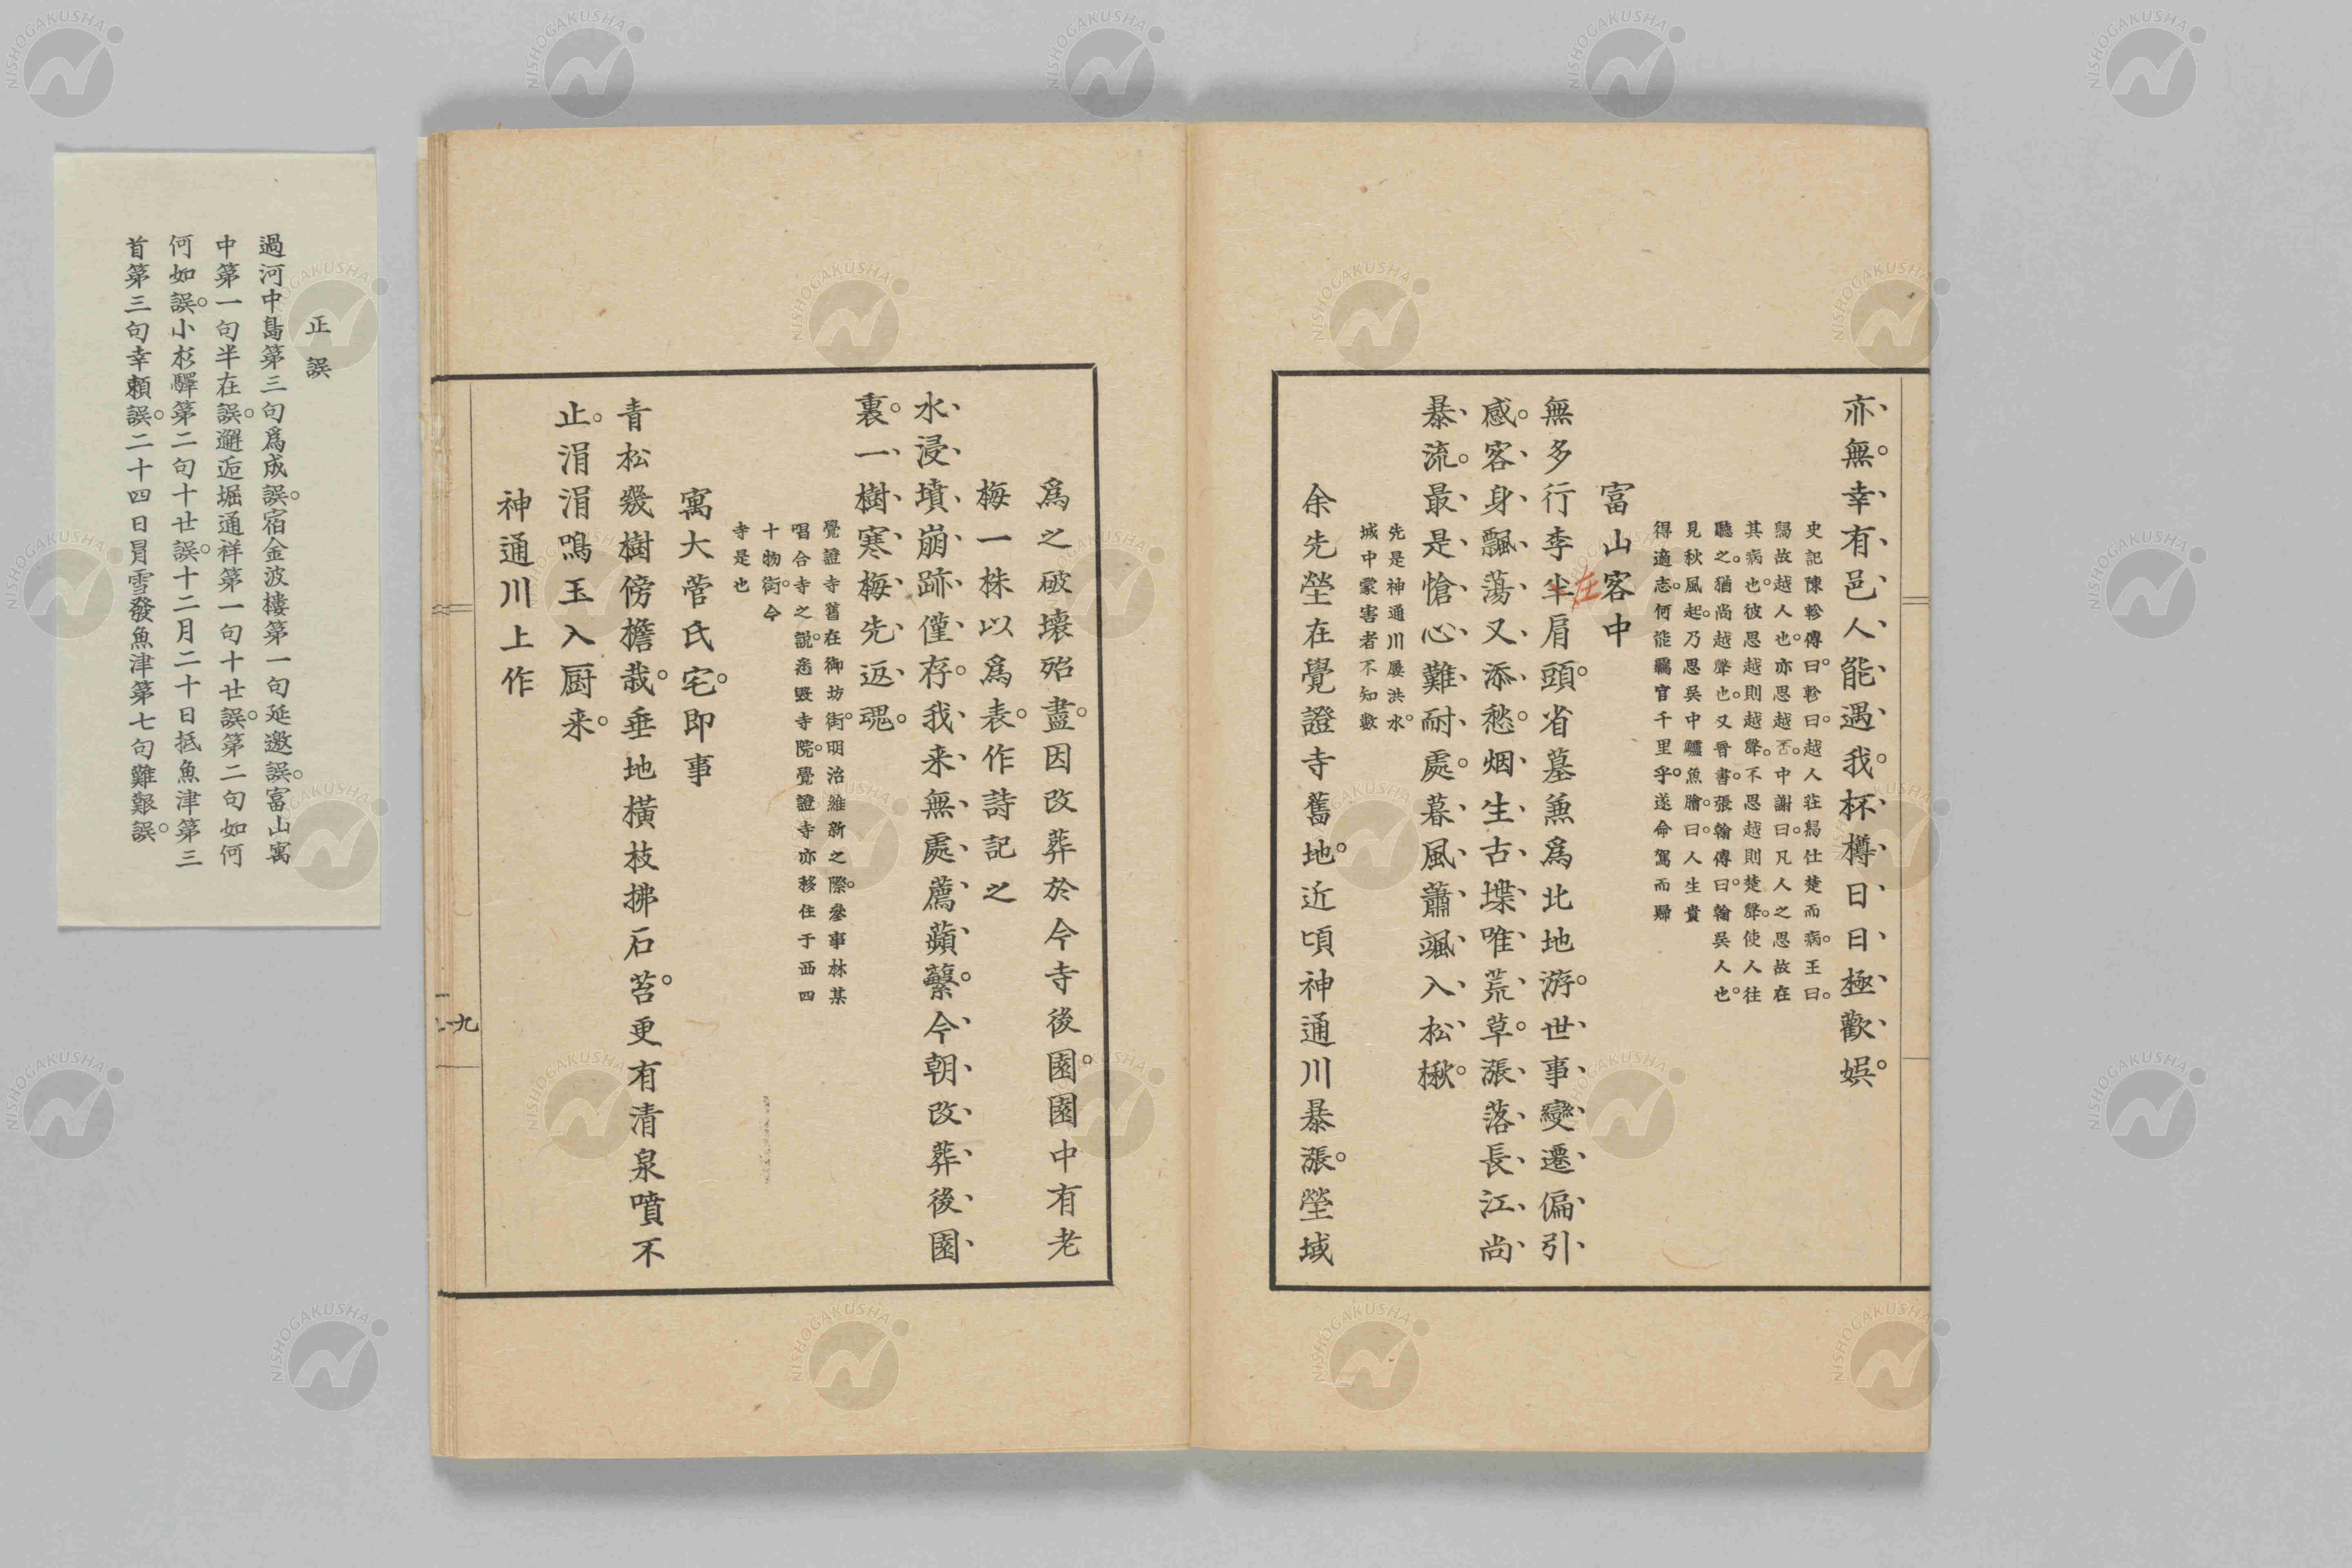 亦無。幸有邑人能遇我。杯樽日日極歡娯。
史記陳軫傳曰。軫曰。越人莊舃仕楚而病。王曰。
舃故越人也。亦思越否。中謝曰。凡人之思故在
其病也。彼思越則越聲。不思越則楚聲。使人往
聽之。猶尚越聲也。又晉書。張翰傳曰。翰吳人也。
見秋風起。乃思吳中鱸魚膾。曰。人生貴
得適志。何能羈官千里乎。遂命駕而歸
富山客中
無多行李半在肩頭。省墓兼爲北地游。世事變遷偏引
感。客身飄蕩又添愁。烟生古堞唯荒草。漲落長江尚
暴流。最是愴心難耐處。暮風蕭颯入松楸。
先是神通川屡洪水。
城中蒙害者不知數
余先塋在覺證寺舊地。近頃神通川暴漲。塋域
爲之破壞殆盡。因改葬於今寺後園。園中有老
梅一株以爲表。作詩記之
水浸墳崩跡僅存。我来無處薦蘋蘩。今朝改葬後園
裏。一樹寒梅先返魂。
覺證寺舊在御坊街。明治維新之際。參事林某
唱合寺之説。悉毀寺院。覺證寺亦移住于西四
十物街。今
寺是也
寓大菅氏宅。即事
青松幾樹傍檐栽。垂地橫枝拂石苔。更有清泉噴不
止。涓涓鳴玉入厨来。
神通川上作
九
正誤
過河中島第三句爲成誤。宿金波樓第一句延邀誤。富山寓
中第一句半在誤。邂逅堀通祥第一句十廿誤。第二句如何
何如誤。小杉驛第二句十廿誤。十二月二十日抵魚津第三
首第三句幸頼誤。二十四日冐雪發魚津第七句難艱誤。
NISHOGAKUSHA